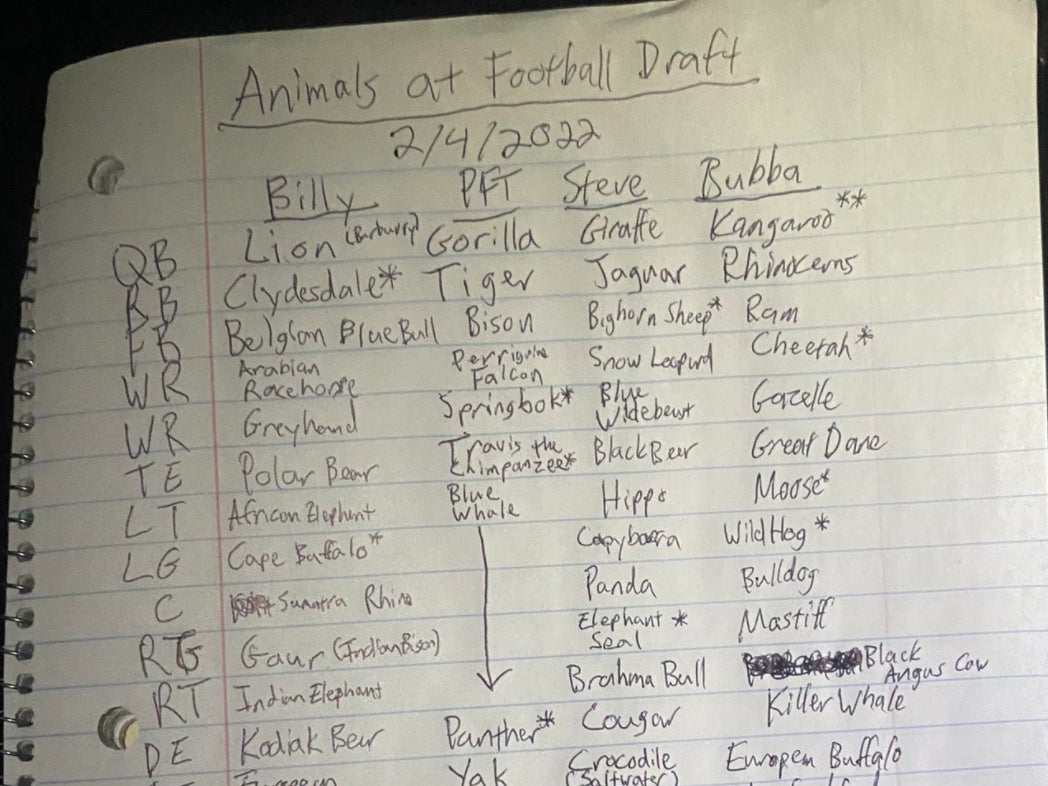 Animals at Football Draft
2/4/2022
Billy PFT Steve Bubba
QB Lion (Barbary) Gorilla Giraffe Kangaroo**
RB Clydesdale* Tiger Jaguar Rhinocerns
FB Belgian Blue Bull Bison Bighorn Sheep* Ram
WR Arabian Racehorse Perrigrine Falcon Snow Leopard Cheetah*
WR Greyhound Springbok* Blue Wildebeest Gazelle
TE Polar Bear Travis the Chimpanzee* Black Bear Great Dane
LT African Elephant Blue Whale Hippo Moose*
LG Cape Buffalo* Capybara Wild Hog*
C Sumatra Rhino Panda Bulldog
RG Gaur (Indian Bison) Elephant Seal* Mastiff
RT Indian Elephant Brahma Bull Black Angus Cow
DE Kodiak Bear Panther* Cougar Killer Whale
Yak Crocodile (Saltwater) Europen Buffalo